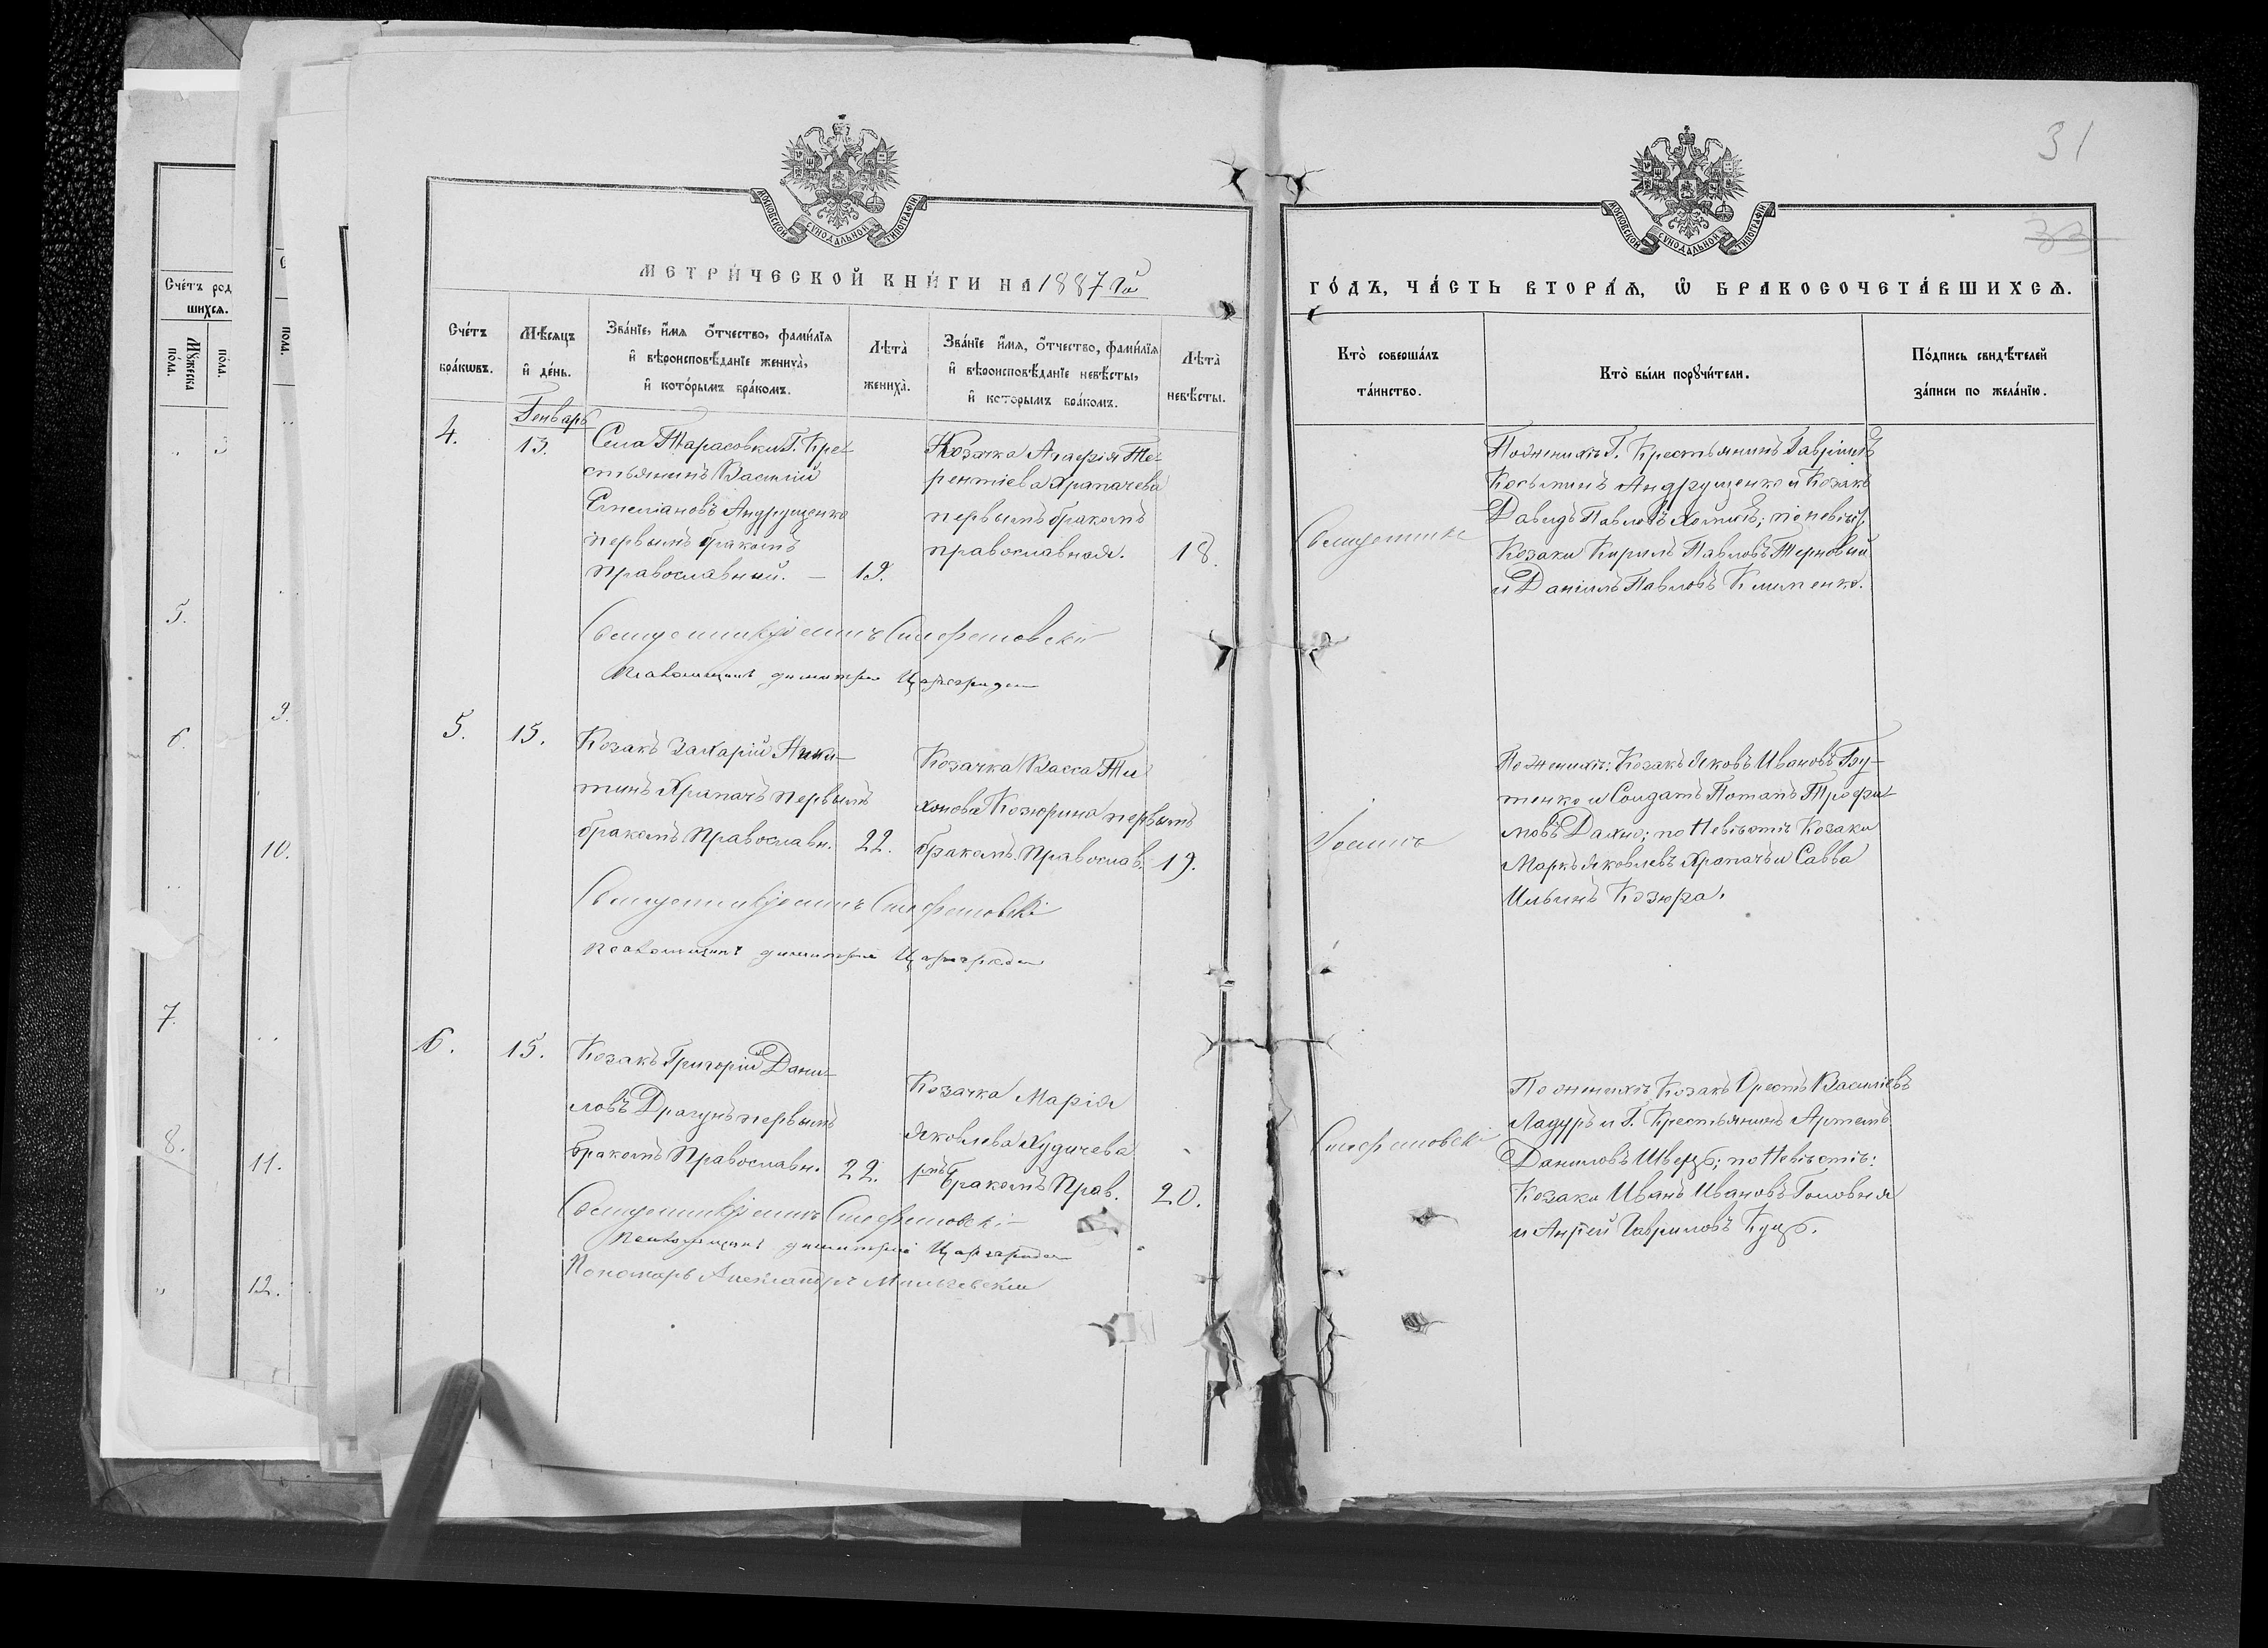 31
33
МОСКОВСКОЙ СУНОДАЛЬНОЙ ТИПОГРАФІИ
МОСКОВСКОЙ СУНОДАЛЬНОЙ ТИПОГРАФІИ
МЕТРИ́ЧЕСКОЙ КНИ́ГИ НА 1887 й
ГО́ДЪ, ЧА́СТЬ ВТОРА́Я, Ѿ БРАКОСОЧЕТА́ВШИХСЯ.
Сче́тъ бра́кωвъ.
Мѣ́сяцъ и҆ де́нь.
Зва́нїе, и҆́мя ѻ҆́тчество, фами́лїя
и҆ вѣроисповѣ́данїе жениха̀,
и҆ кото́рымъ бра́комъ.
Лѣта̀ жениха̀.
Зва́нїе и҆́мя, ѻ҆́тчество, фами́лїя
и҆ вѣроисповѣ́данїе невѣ́сты,
и҆ которымъ бра́комъ.
Лѣта̀ невѣ́сты.
Кто̀ соверша́лъ
та́инство.
Кто̀ бы́ли порꙋчи́тели.
По́дпись свидѣ́телей
за́писи по жела́нїю.
Генварь
4.
13.
Села Тарасовки Г. Кре-
стьянинъ Василий
Емеліановъ Андрущенко
первымъ бракомъ
православный. — 19.
Козачка Агафія Те-
рентіева Храпачева
первымъ бракомъ
православная. 18.
Священникъ
По женихѣ Г. Крестьянинъ Гавріилъ
Косьминъ Андрущенко и Козакъ
Давидъ Павловъ Хоминъ; по невѣстѣ
Козаки Кирилъ Павловъ Терновый
и Даніилъ Павловъ Клименко.
Священникъ Іоаннъ Стефановскій
Псаломщикъ Димитрій
5.
15.
Козакъ Захарій Ники-
тинъ Храпачъ первымъ
бракомъ Православн. 22.
Козачка Васса Ти
хонова Козюрина первымъ
бракомъ Православ. 19.
Іоаннъ
По женихѣ: Козакъ Яковъ Ивановъ Гу-
тенко и Солдатъ Потапъ Трофи-
мовъ Дахно; по Невѣстѣ Козаки
Маркъ Яковлевъ Храпачъ и Савва
Ильинъ Козюра.
Священникъ Іоаннъ Стефановскій
Псаломщикъ Димитрій
6.
15.
Козакъ Григорій Дани-
ловъ Драгунъ первымъ
бракомъ Православн. 22.
Козачка Марія
Яковлева Худичева
1мъ бракомъ Прав. 20.
Стефановскій
По женихѣ Козакъ Орестъ Василіевъ
Ладуръ и Г. Крестьянинъ Артемъ
Даниловъ Швецъ; по Невѣстѣ:
Козаки Иванъ Ивановъ Головня
и Анрей Гавриловъ Куцъ.
Священникъ Іоаннъ Стефановскій
Псаломщикъ Димитрій
Пономарь Александръ
Сче́тъ род
шихся.
Мꙋ́жеска по́ла.
по́ла.
5.
6.
7.
8.
9.
10.
11.
12.